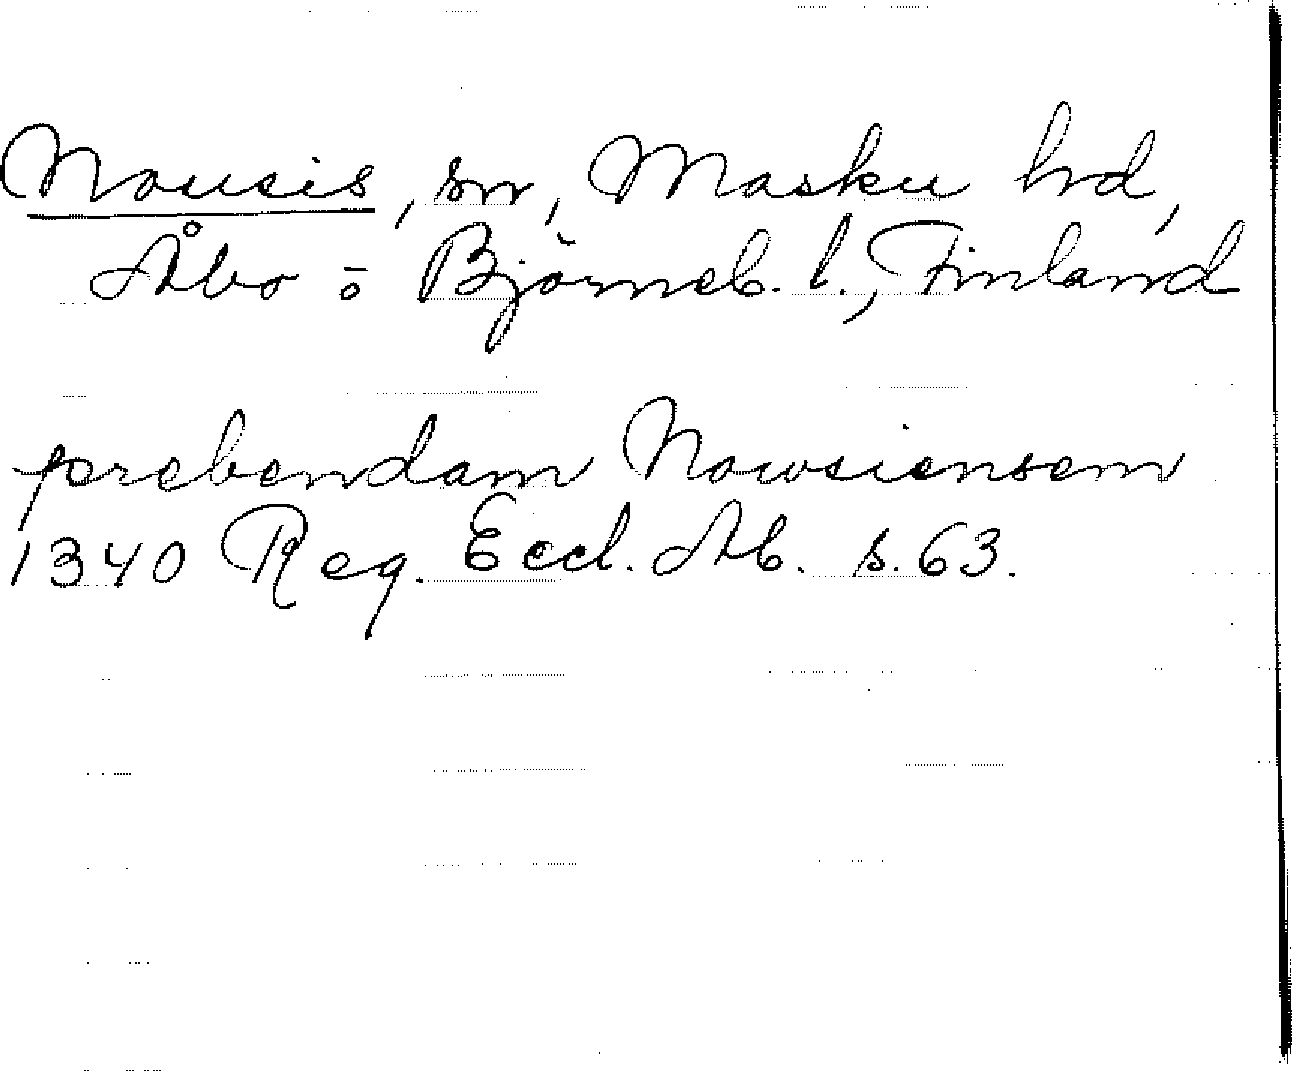 Nousis, sn, Masku hd,
Åbo o Björneb. l., Finland
prebendam Nowsiensem
1340 Reg. Eccl. Ab. s. 63.